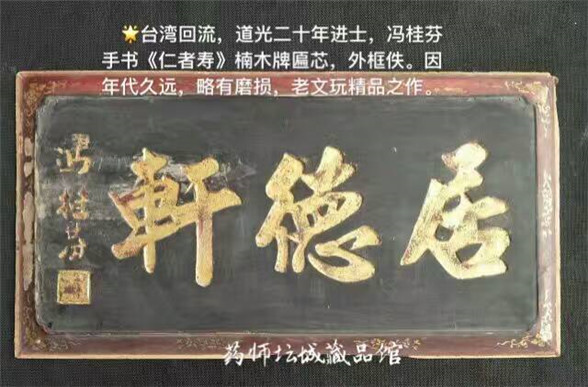 🌟台湾回流，道光二十年进士，冯桂芬
手书《仁者寿》楠木牌匾芯，外框佚。因
年代久远，略有磨损，老文玩精品之作。
居德軒
馮桂芬
药师坛城藏品馆